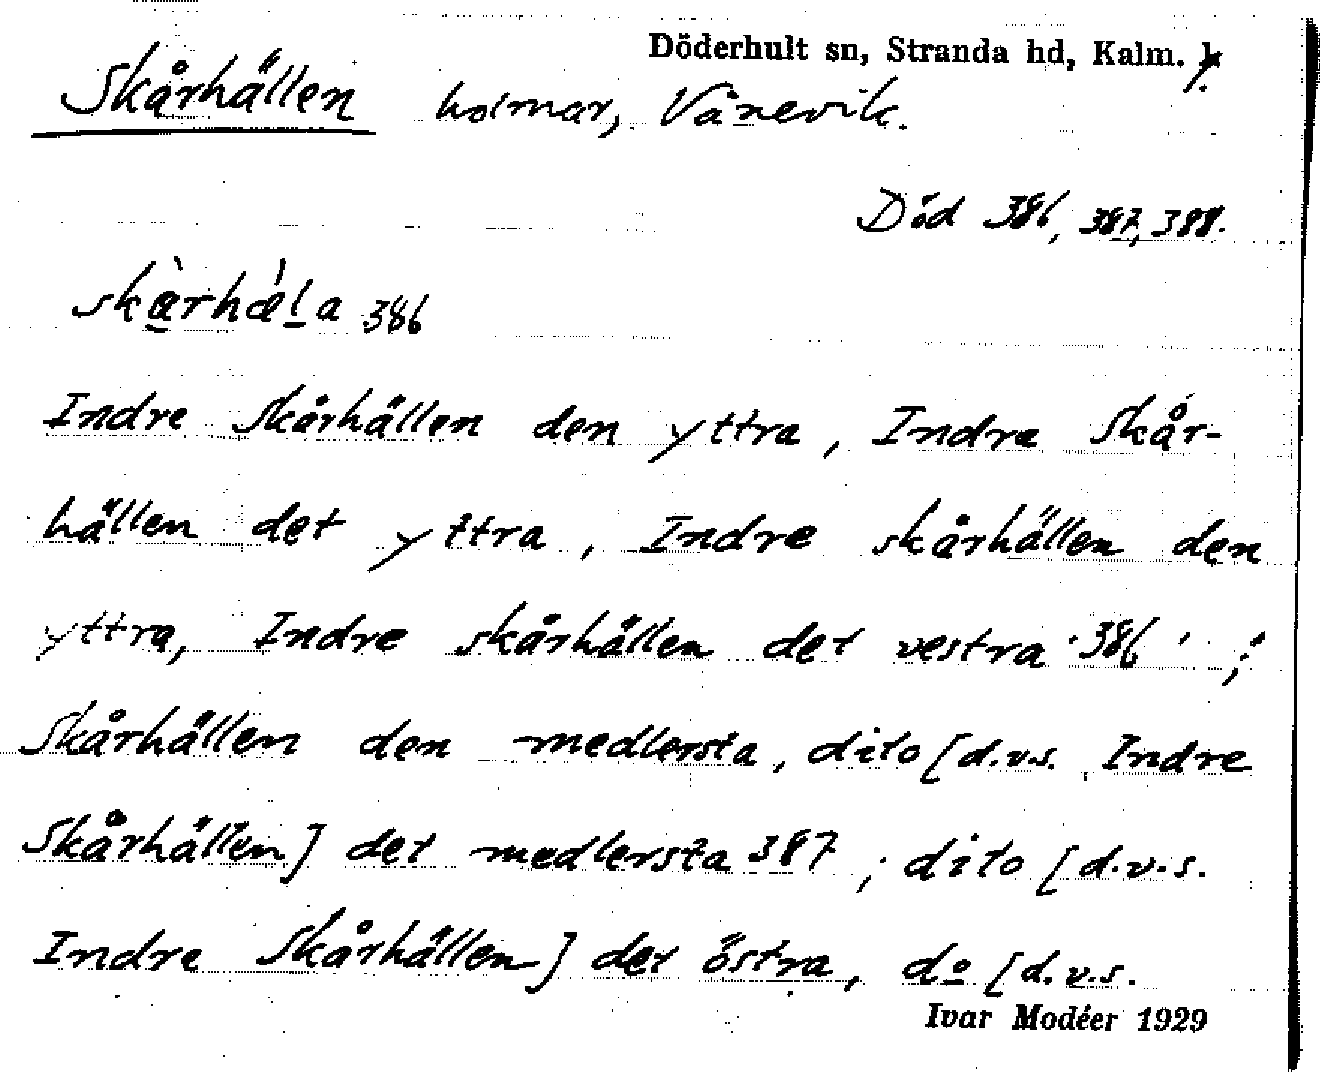 Döderhult sn, Stranda hd, Kalm. l.
Skårhällen holmar, Vånevik.
Död 386, 387, 388.
386
Indre Skårhällen den yttra, Indre Skår-
hällen det yttra, Indre skårhällen den
yttra, Indre skårhällen det vestra 386 ;
Skårhällen den medlersta, dito [d.v.s. Indre
Skårhällen] det medlersta 387 ; dito [d.v.s.
Indre Skårhällen] det östra, do [d.v.s.
Ivar Modéer 1929